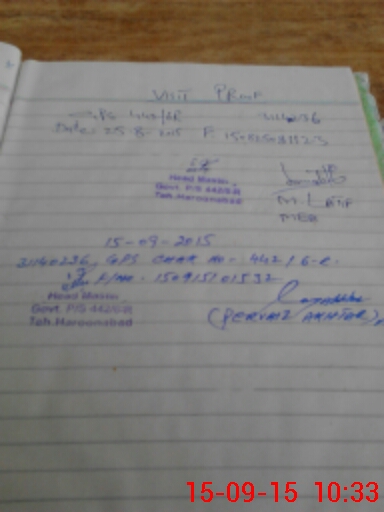 VISIT PROOF
GPS 442/6R 31140236
Date: 25-8-2015 F.
Head Master
Govt. P/S 442/6-R
Teh. Haroonabad
M. LATIF
MEA
15-09-2015
31140236, GPS CHAK No - 442/6-R.
F/No. 150915101532
Head Master
Govt. P/S 442/6-R
Teh. Haroonabad
(PERVAIZ AKHTAR)
15-09-15 10:33